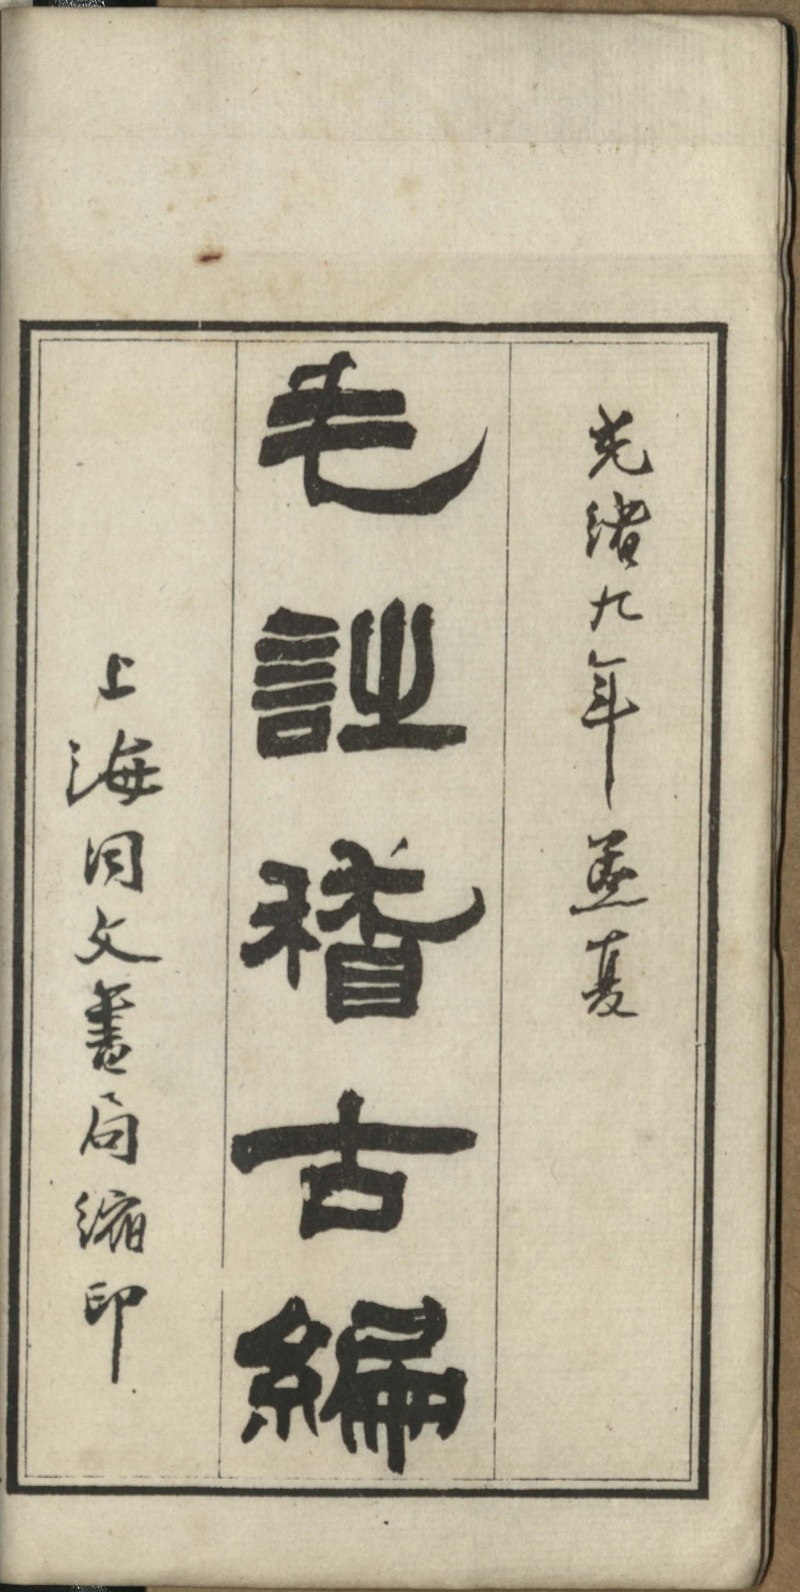 光緒九年孟夏
毛詩稽古編
上海同文書局縮印